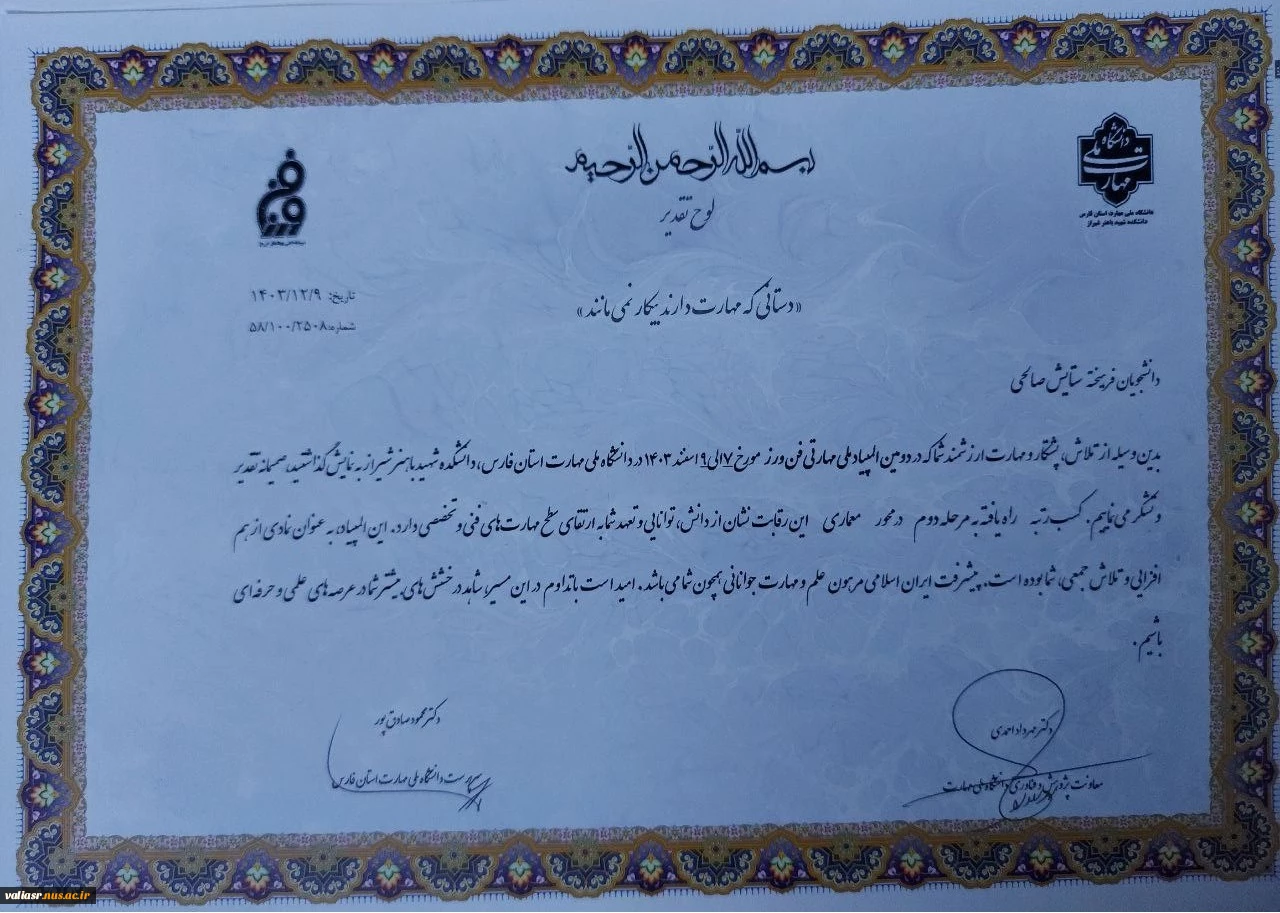 بسم الله الرحمن الرحیم
لوح تقدیر
دانشگاه ملی مهارت
دانشگاه ملی مهارت استان فارس
دانشکده شهید باهنر شیراز
فن ورز
تاریخ: ۱۴۰۳/۱۲/۹
شماره: ۵۸/۱۰۰/۲۵۰۸
«دستانی که مهارت دارند بیکار نمی مانند»
دانشجویان فرهیخته ستایش صالحی
بدین وسیله از تلاش، پشتکار و مهارت ارزشمند شما که در دومین المپیاد ملی مهارتی فن ورز مورخ ۷ الی ۹ اسفند ۱۴۰۳ در دانشگاه ملی مهارت استان فارس، دانشکده شهید باهنر شیراز به نمایش گذاشتید، صمیمانه تقدیر
و تشکر می نماییم. کسب رتبه راه یافته به مرحله دوم در محور معماری این رقابت نشان از دانش، توانایی و تعهد شما به ارتقای سطح مهارت های فنی و تخصصی دارد. این المپیاد، به عنوان نمادی از هم
افزایی و تلاش جمعی، شما بوده است. پیشرفت ایران اسلامی مرهون علم و مهارت جوانانی همچون شما می باشد. امید است با تداوم در این مسیر، شاهد درخشش های بیشتر شما در عرصه های علمی و حرفه ای
باشیم.
دکتر مهرداد احمدی
معاونت پژوهش و فناوری دانشگاه ملی مهارت
دکتر محمود صادق پور
سرپرست دانشگاه ملی مهارت استان فارس
valiasr.nus.ac.ir